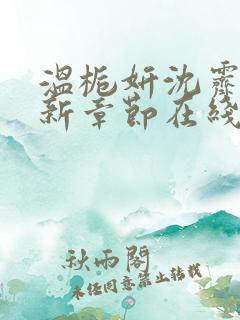 温栀妍沈霽
新章節在綫
秋雨閣
未經同意禁止轉載